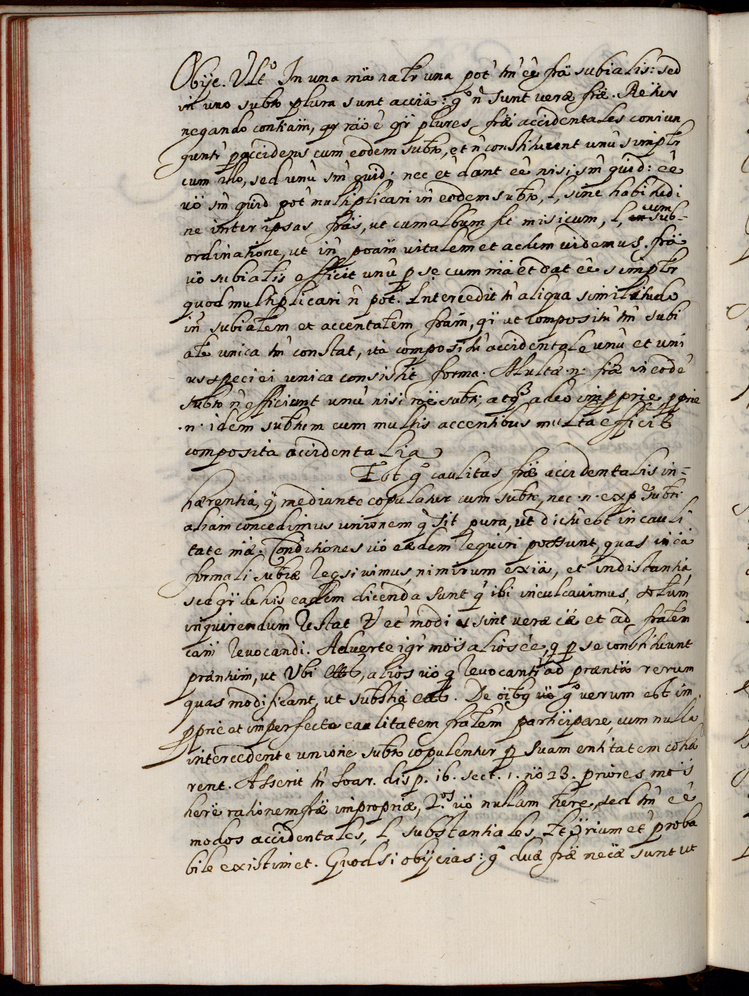 Obije. Ult.º In una mã natr una pot' tm' ee frã subialis: sed
in uno subto plura sunt accia: gº n' sunt veræ fræ. Reiicr
negando contiam, qr raoe qr plures fræ accidentales coniun
gunt' paccidens cum eodem subto, et n' constituent unu' simplr
cum illo, sed unu' sm' quid; nec et' dant ee nisi sm' quid: ee
uo sm' quid pot' multiplicari in eodem subto, l, sine habitudi
ne inter ipsas fras, ut cum album fit musicum, l, cum sub-
ordinatione, ut in poam vitalem et actum videmus, frã
uo subialis efficit unu' p se cum mã et dat ee simplr
quod multiplicari n' pot'. Intercedit tn' aliqua similitudo
in' subialem et accentalem foam, qr ut compositu' tm' subi
ale unica tm' constat, ita compositu' accidentale unu' et uni
us speciei unica consistit forma. Multæ n. fræ in eode'
subto n' efficiunt unu' nisi rõe subti; atq3 adeo impprie pprie
.n. idem subtum cum multis accentibus multa efficit
composita accidentalia.
Est gº caulitas fræ accidentalis in-
hærentia, q mediante copulatur cum subto, nec .n. ex p subti
aliam concedimus unionem q sit pura, ut dictu' est in cauli
tate mæ. Conditiones uo eædem requiri possunt, quas in cã
formali subiæ requisivimus, nimirum exia, et indistantia,
sed qr de his eadem dicenda sunt q ibi inculcavimus, solum
inquirendum restat et' modi sint veræ cæ et ad fralem
cam revocandi. Adverte igr moîs alios ee, q p se constituunt
præntum, ut Ubi, alios uo q revocantr ad prænta rerum
quas modificant, ut substia. De oibq uo gº verum est in
pprie et imperfecte caulitatem fralem participare, cum nulla
intercedente unione subto copulentur p suam entitatem cohæ
rent. Asserit tn' Soar. disp. 16. sect. 1. nõ 23. priores mos
here rationem fræ impropriæ, 2.os uo nullam here, sed tm' ee
modos accidentales, l, substantiales, lt prium et' proba
bile existimet. Quod si obijcias: gº duæ fræ neciæ sunt ut